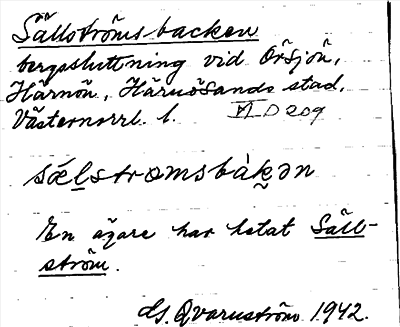 Sällströmsbacken
bergssluttning vid Örsjön,
Härnön, Härnösands stad,
Västernorrl. l. VI D 209
sǽlstromsbàk̬ən
En ägare har hetat Säll-
ström.
G. Qvarnström 1942.